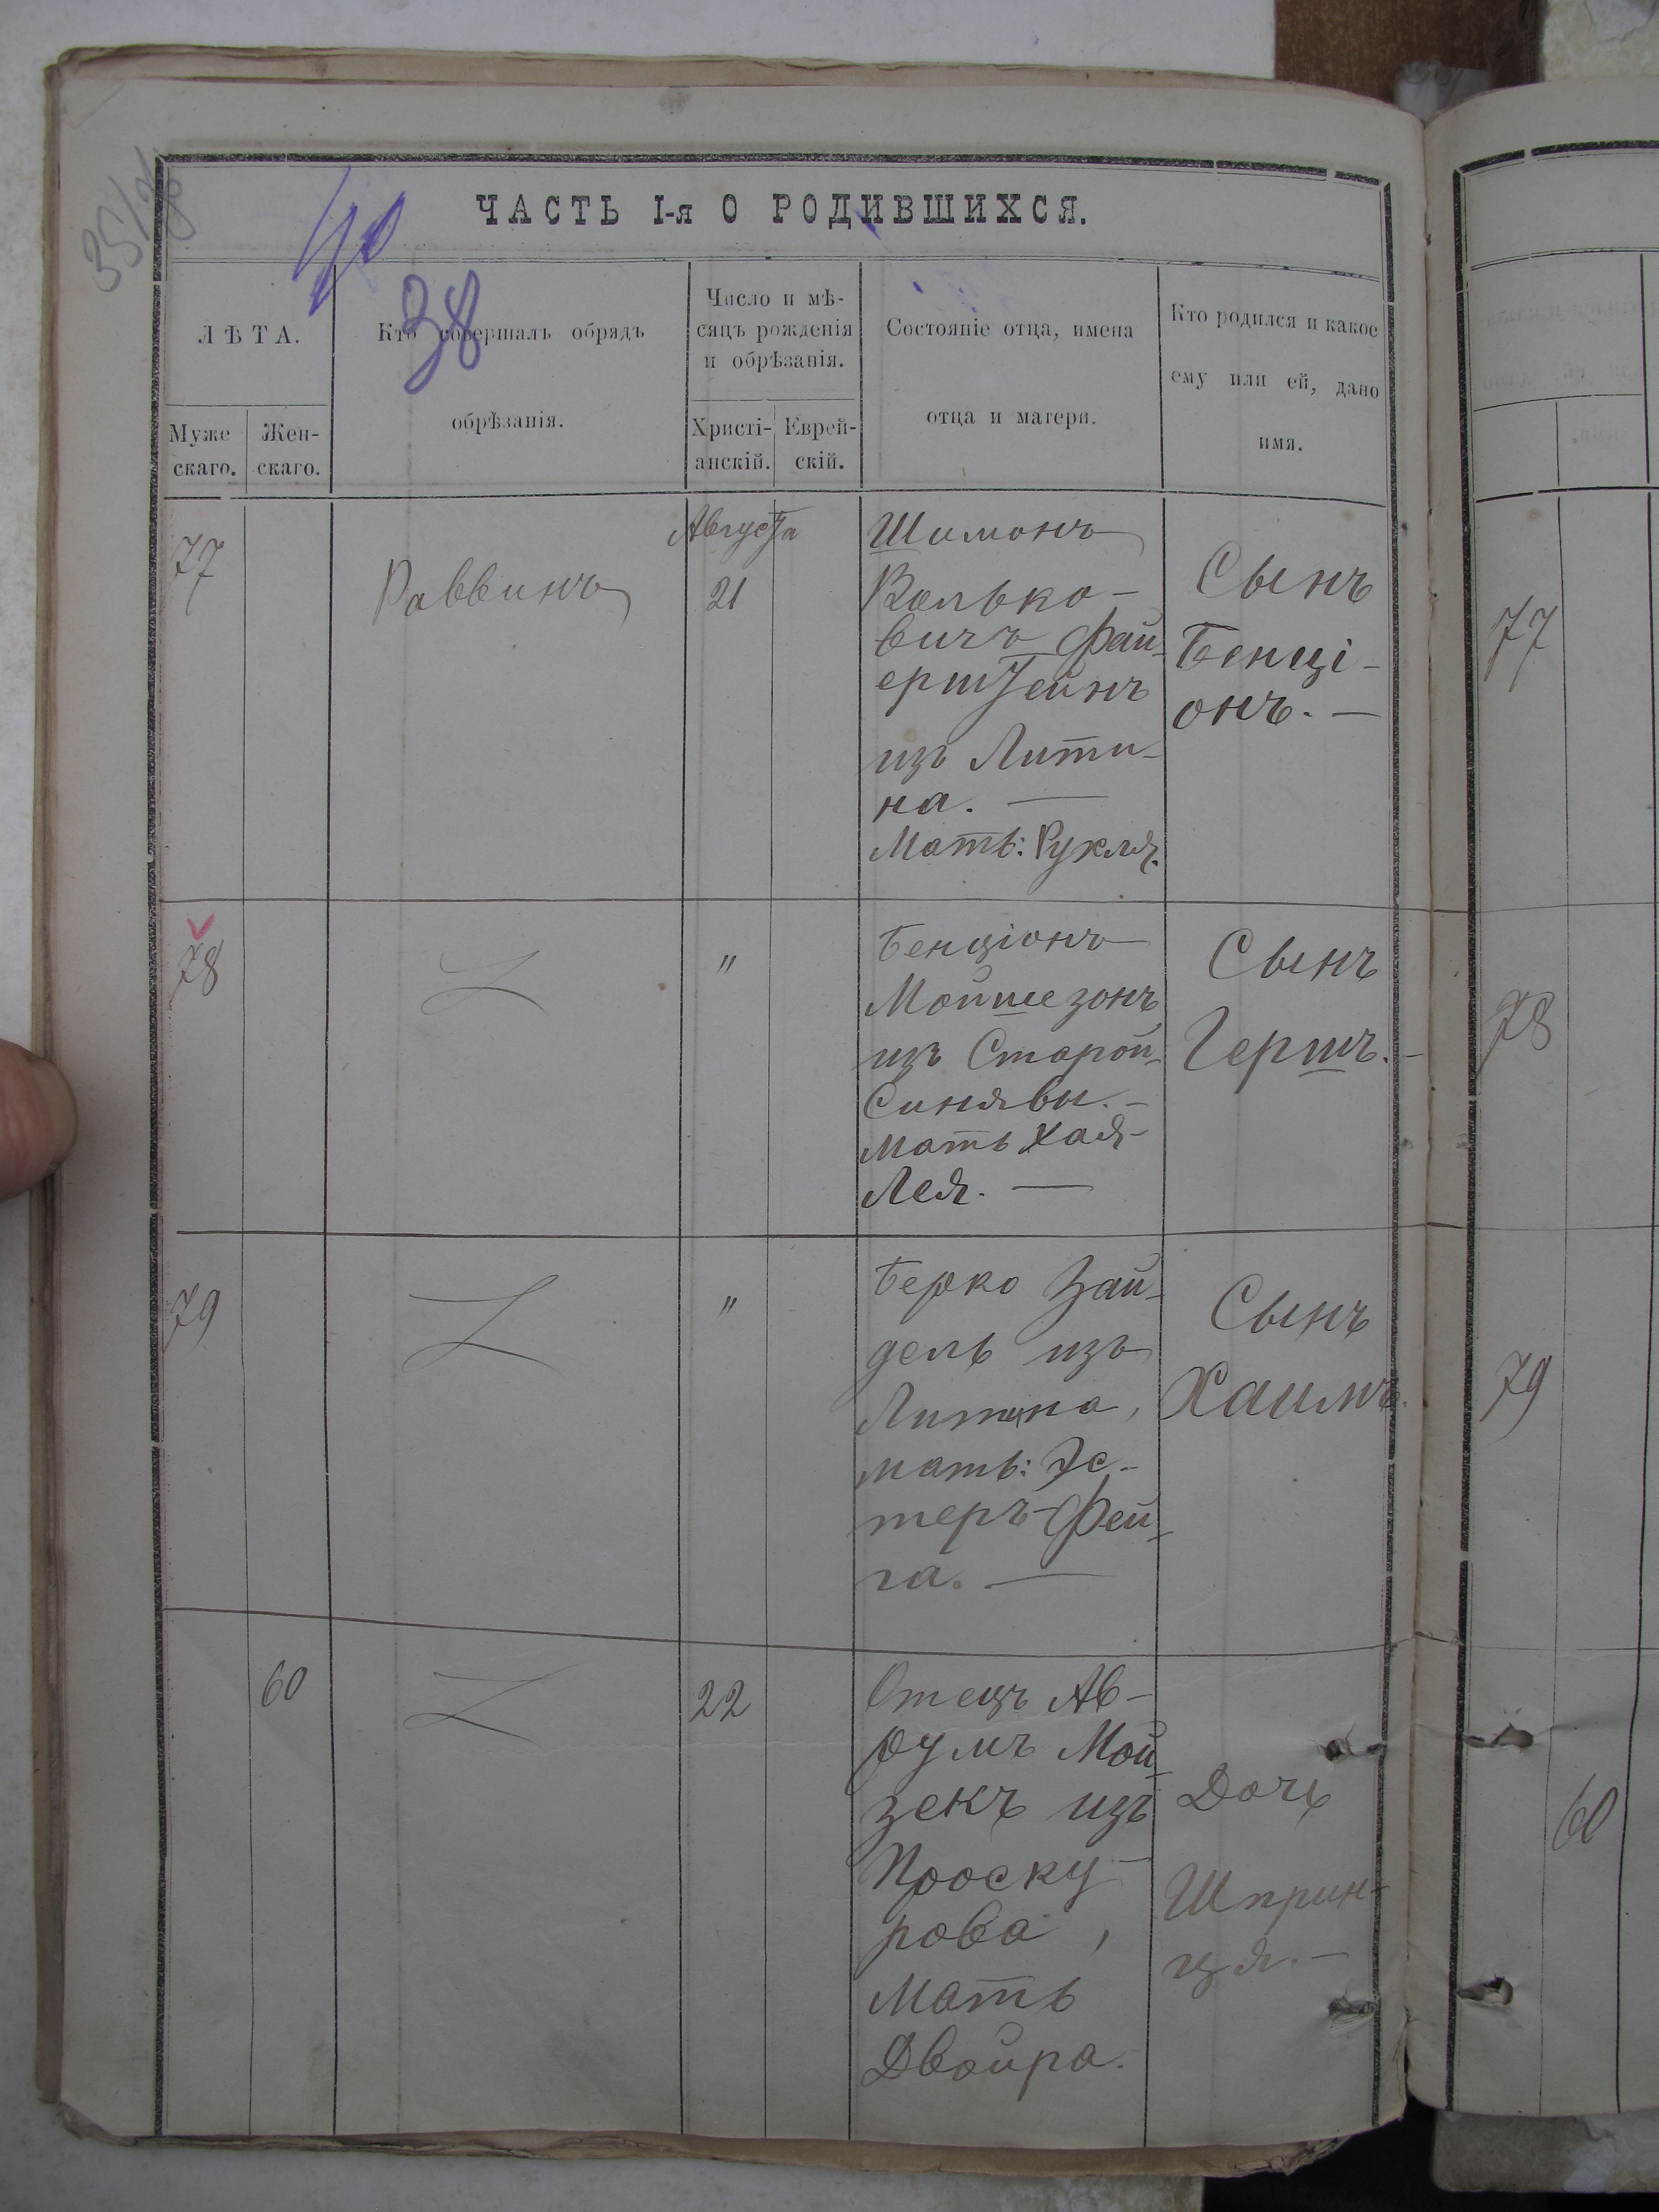 ЧАСТЬ I-я О РОДИВШИХСЯ.
40
38
ЛѢТА.
Муже
скаго.
Жен-
скаго.
Кто совершалъ обрядъ
обрѣзанія.
Число и мѣ-
сяцъ рожденія
и обрѣзанія.
Христі-
анскій.
Еврей-
скій.
Состояніе отца, имена
отца и матери.
Кто родился и какое
ему или ей, дано
имя.
77
Раввинъ
Августа
21
Шимонъ
Волько-
вичъ Фай-
ерштейнъ
изъ Лити-
на. —
Мать: Рухля.
Сынъ
Бенці-
онъ. —
77
78
"
Бенціонъ
Мойшезонъ
изъ Старой-
Синявы. —
Мать Хая-
Лея. —
Сынъ
Гершъ. —
78
79
"
Берко Зай-
дель изъ
Литина,
мать: Эс-
теръ-Фей-
га. —
Сынъ
Хаимъ.
79
60
22
Отецъ Ав-
румъ Мой-
зекъ изъ
Проску-
рова,
Мать
Двойра.
Дочь
Шприн-
ця. —
60